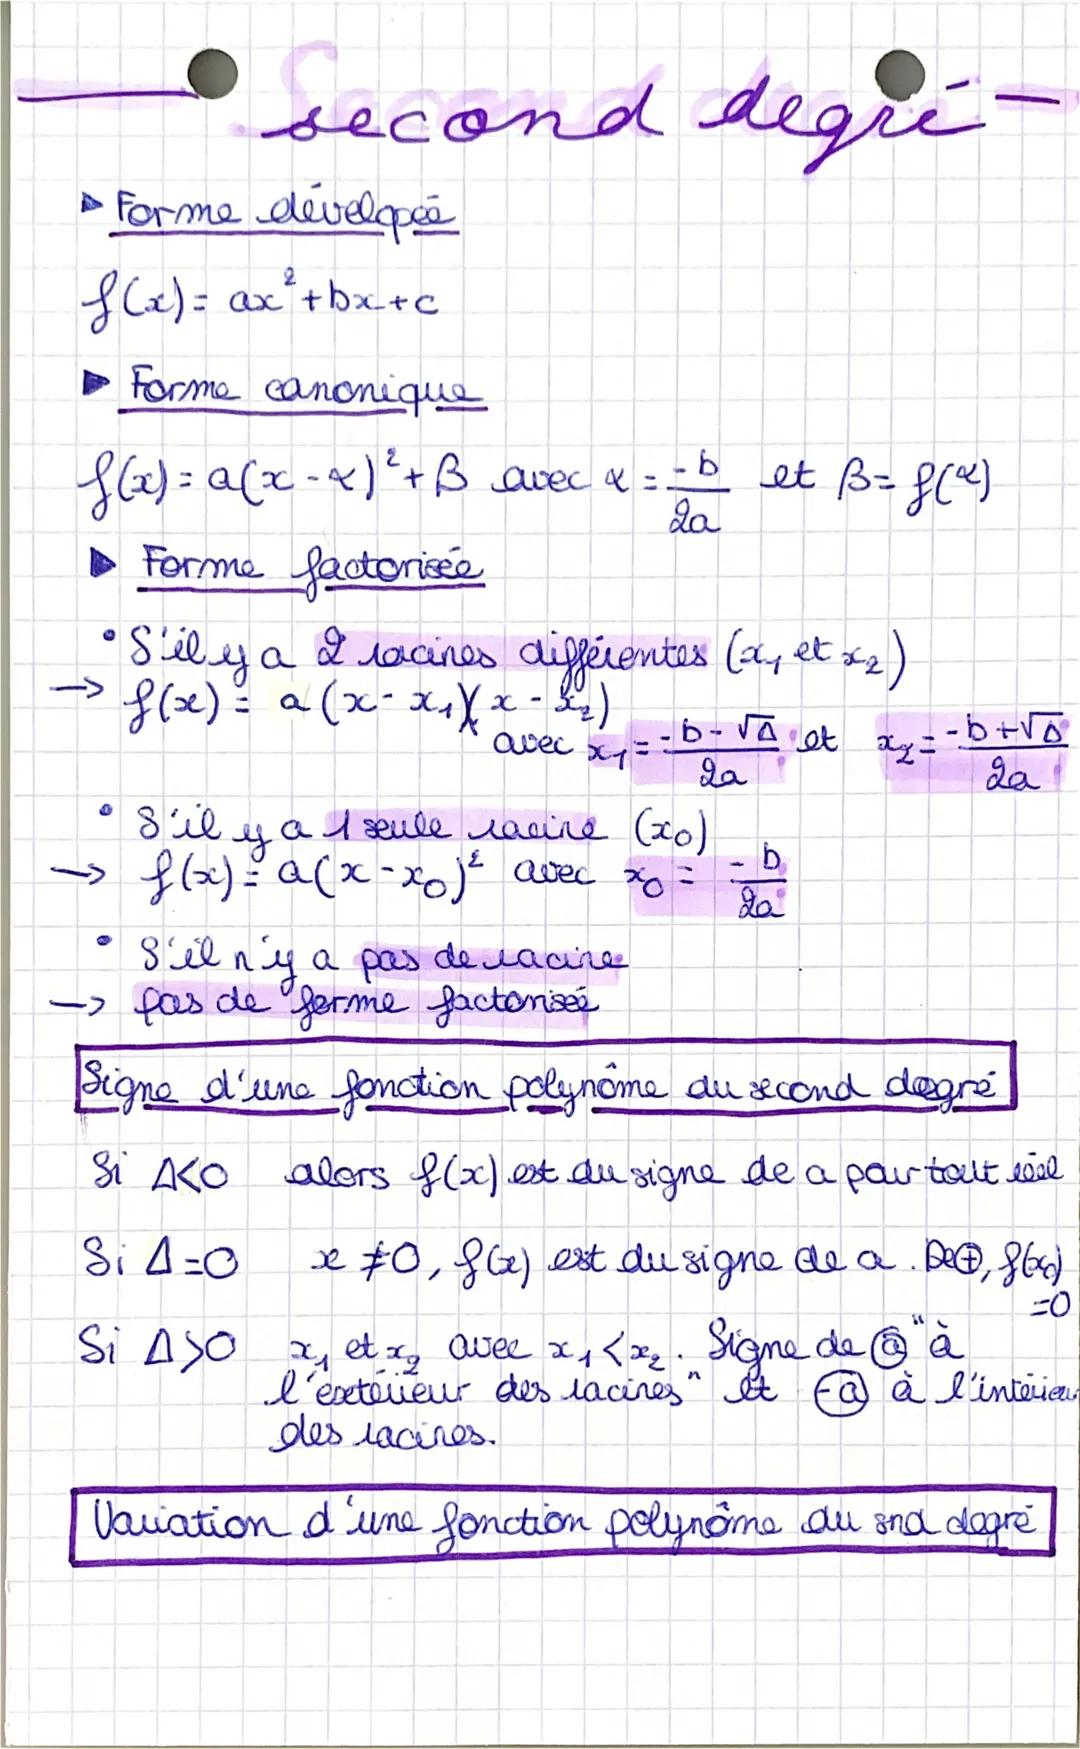 second degré
▶ Forme dévelopée
f(x) = ax²+bx+c
▶ Forme canonique
f(x) = a(x-α)²+β avec α = -b/2a et β = f(α)
▶ Forme factorisée
• S'il y a 2 racines différentes (x₁ et x₂)
→ f(x) = a(x-x₁)(x-x₂)
avec x₁ = -b-√Δ/2a et x₂ = -b+√Δ/2a
• S'il y a 1 seule racine (x₀)
→ f(x) = a(x-x₀)² avec x₀ = -b/2a
• S'il n'y a pas de racine
→ pas de forme factorisée
Signe d'une fonction polynôme du second degré
Si Δ<0 alors f(x) est du signe de a pour tout réel
Si Δ=0 x ≠0, f(x) est du signe de a. De⊕, f(x₀)
=0
Si Δ>0 x₁ et x₂ avec x₁<x₂. Signe de ⓐ "à
l'extérieur des racines" et (-a) à l'intérieur
des racines.
Variation d'une fonction polynôme du snd degré